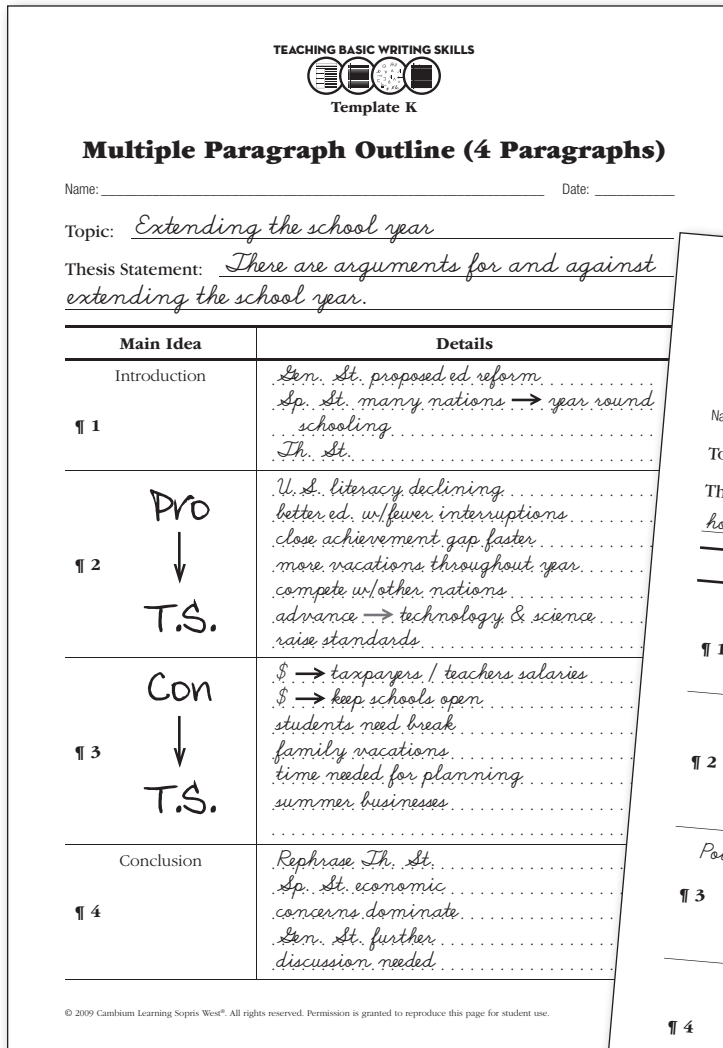 TEACHING BASIC WRITING SKILLS
Template K
Multiple Paragraph Outline (4 Paragraphs)
Name: Date:
Topic: Extending the school year
Thesis Statement: There are arguments for and against
extending the school year.
Main Idea Details
Introduction
¶ 1
Gen. St. proposed ed reform
Sp. St. many nations → year round
schooling
Th. St.
Pro
↓
T.S.
¶ 2
U.S. literacy declining
better ed. w/fewer interruptions
close achievement gap faster
more vacations throughout year
compete w/other nations
advance → technology & science
raise standards
Con
↓
T.S.
¶ 3
$ → taxpayers / teachers salaries
$ → keep schools open
students need break
family vacations
time needed for planning
summer businesses
Conclusion
¶ 4
Rephrase Th. St.
Sp. St. economic
concerns dominate
Gen. St. further
discussion needed
© 2009 Cambium Learning Sopris West®. All rights reserved. Permission is granted to reproduce this page for student use.
¶ 1
¶ 2
¶ 3
¶ 4